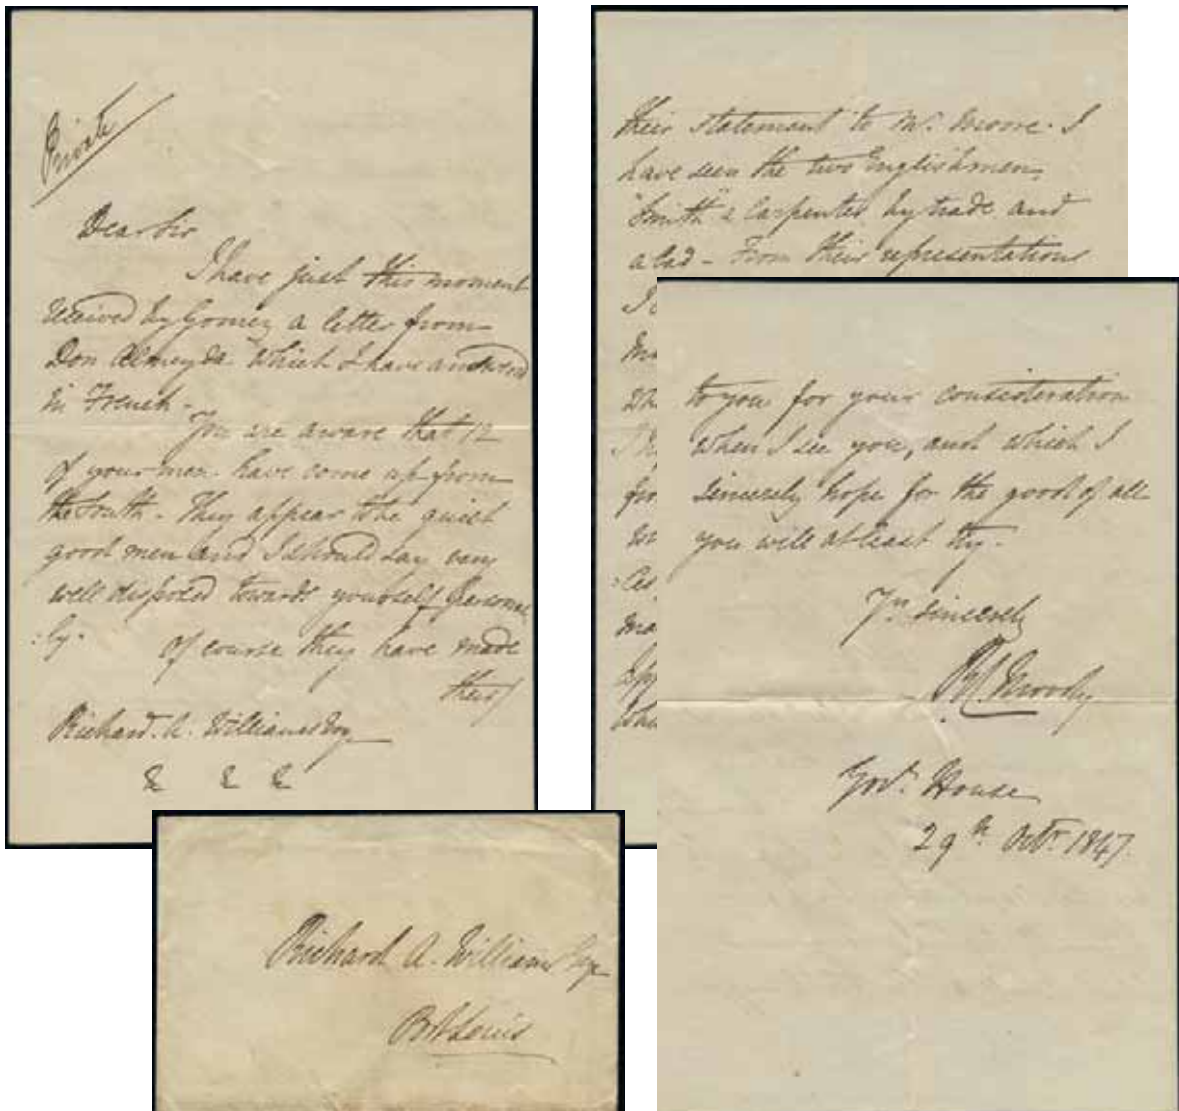 Private
Dear Sir
I have just this moment
received by Gomez a letter from
Don Almeyda which I have answered
in French -
You are aware that 12
of your men have come up from
the South - They appear to be quiet
good men and I should say very
well disposed towards yourself personal
:ly. Of course they have made
their/
Richard. A. Williams Esq
& & &
their statement to Mr. Moore. I
have seen the two Englishmen,
"Smith" a Carpenter by trade and
a lad - From their representations
to you for your consideration
when I see you, and which I
sincerely hope for the good of all
you will at least try.
Yrs sincerely
R C Moody
Govt. House
29th Octr. 1847.
Richard A. Williams Esqe
Port Louis